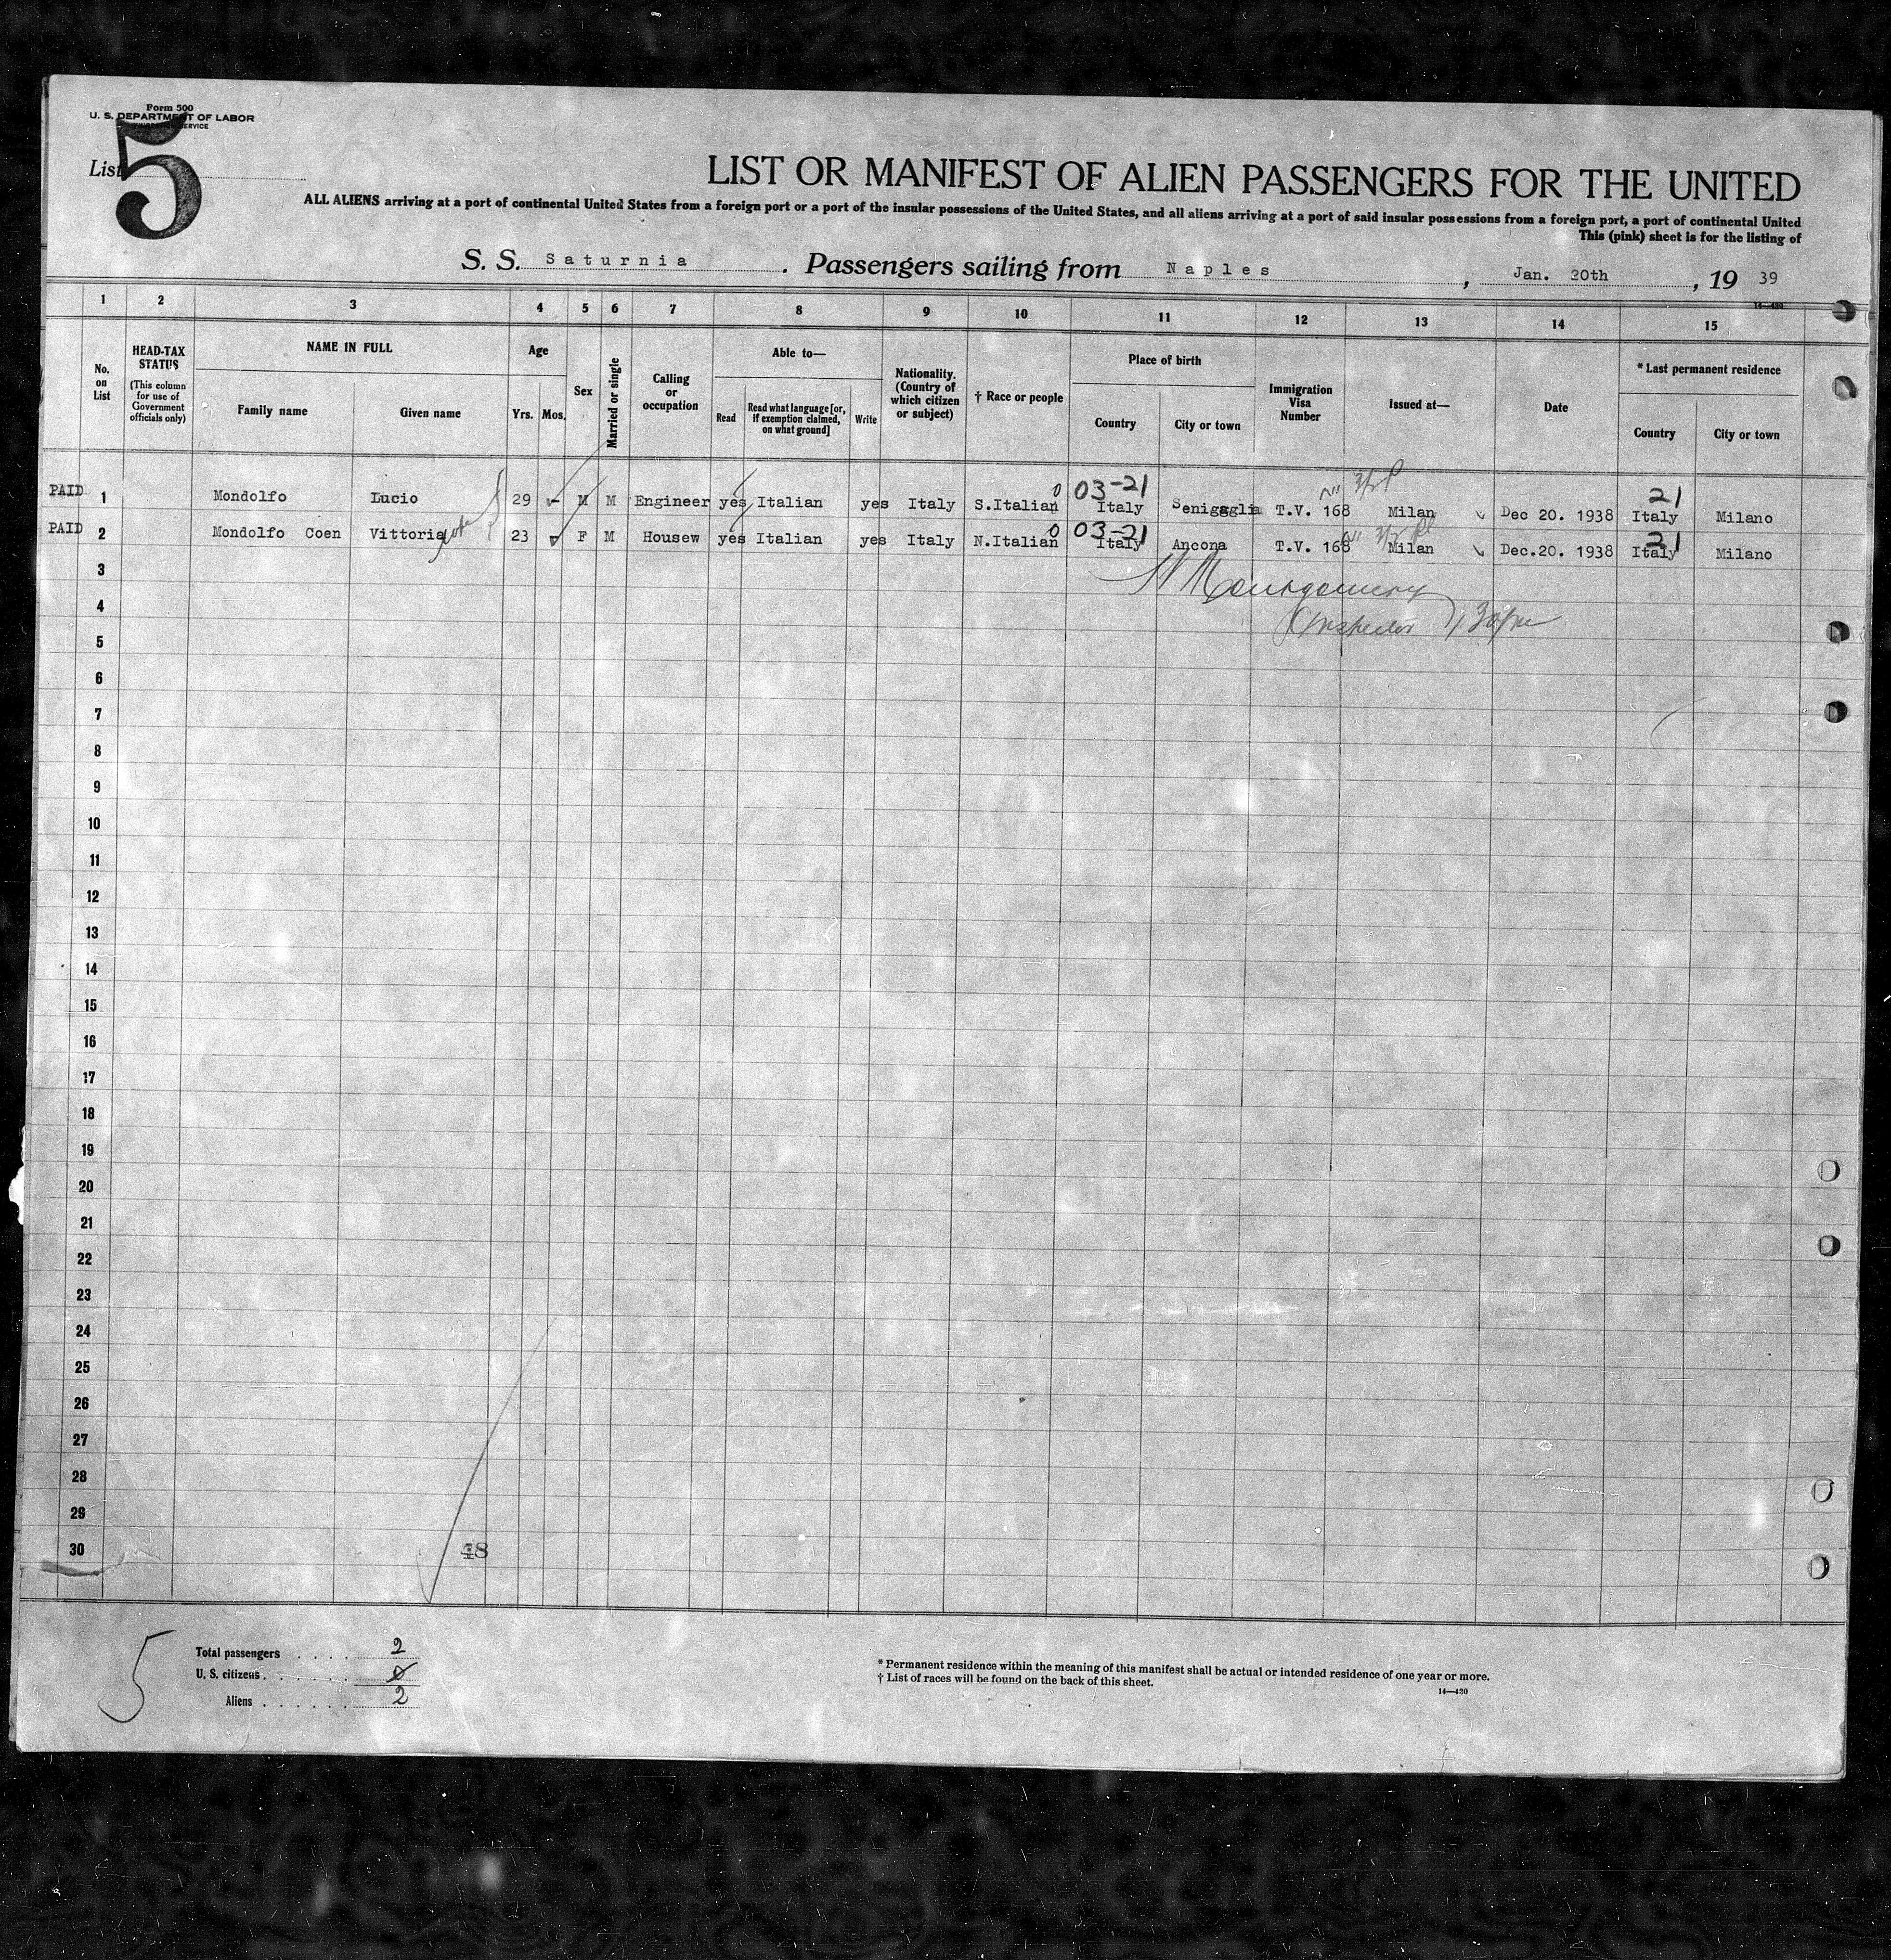 Form 500
U. S. DEPARTMENT OF LABOR
SERVICE
List 5
LIST OR MANIFEST OF ALIEN PASSENGERS FOR THE UNITED
ALL ALIENS arriving at a port of continental United States from a foreign port or a port of the insular possessions of the United States, and all aliens arriving at a port of said insular possessions from a foreign port, a port of continental United
This (pink) sheet is for the listing of
S. S. Saturnia. Passengers sailing from Naples, Jan. 20th, 19 39
14—430
1 2 3 4 5 6 7 8 9 10 11 12 13 14 15
No. on List
HEAD-TAX STATUS
(This column for use of Government officials only)
NAME IN FULL
Family name Given name
Age
Yrs. Mos.
Sex
Married or single
Calling or occupation
Able to—
Read
Read what language [or, if exemption claimed, on what ground]
Write
Nationality. (Country of which citizen or subject)
† Race or people
Place of birth
Country City or town
Immigration Visa Number
Issued at—
Date
* Last permanent residence
Country City or town
03-21 21
PAID 1 Mondolfo Lucio 29 - M M Engineer yes Italian yes Italy S.Italian Italy Senigaglia T.V. 168 Milan Dec 20. 1938 Italy Milano
03-21 21
PAID 2 Mondolfo Coen Vittoria 23 F M Housew yes Italian yes Italy N.Italian Italy Ancona T.V. 168 Milan Dec.20. 1938 Italy Milano
3 Montgomery
4 Inspector
5
6
7
8
9
10
11
12
13
14
15
16
17
18
19
20
21
22
23
24
25
26
27
28
29
30
48
5
Total passengers . . . . 2
U. S. citizens . . . . . . 0
Aliens . . . . . . 2
* Permanent residence within the meaning of this manifest shall be actual or intended residence of one year or more.
† List of races will be found on the back of this sheet.
14—430